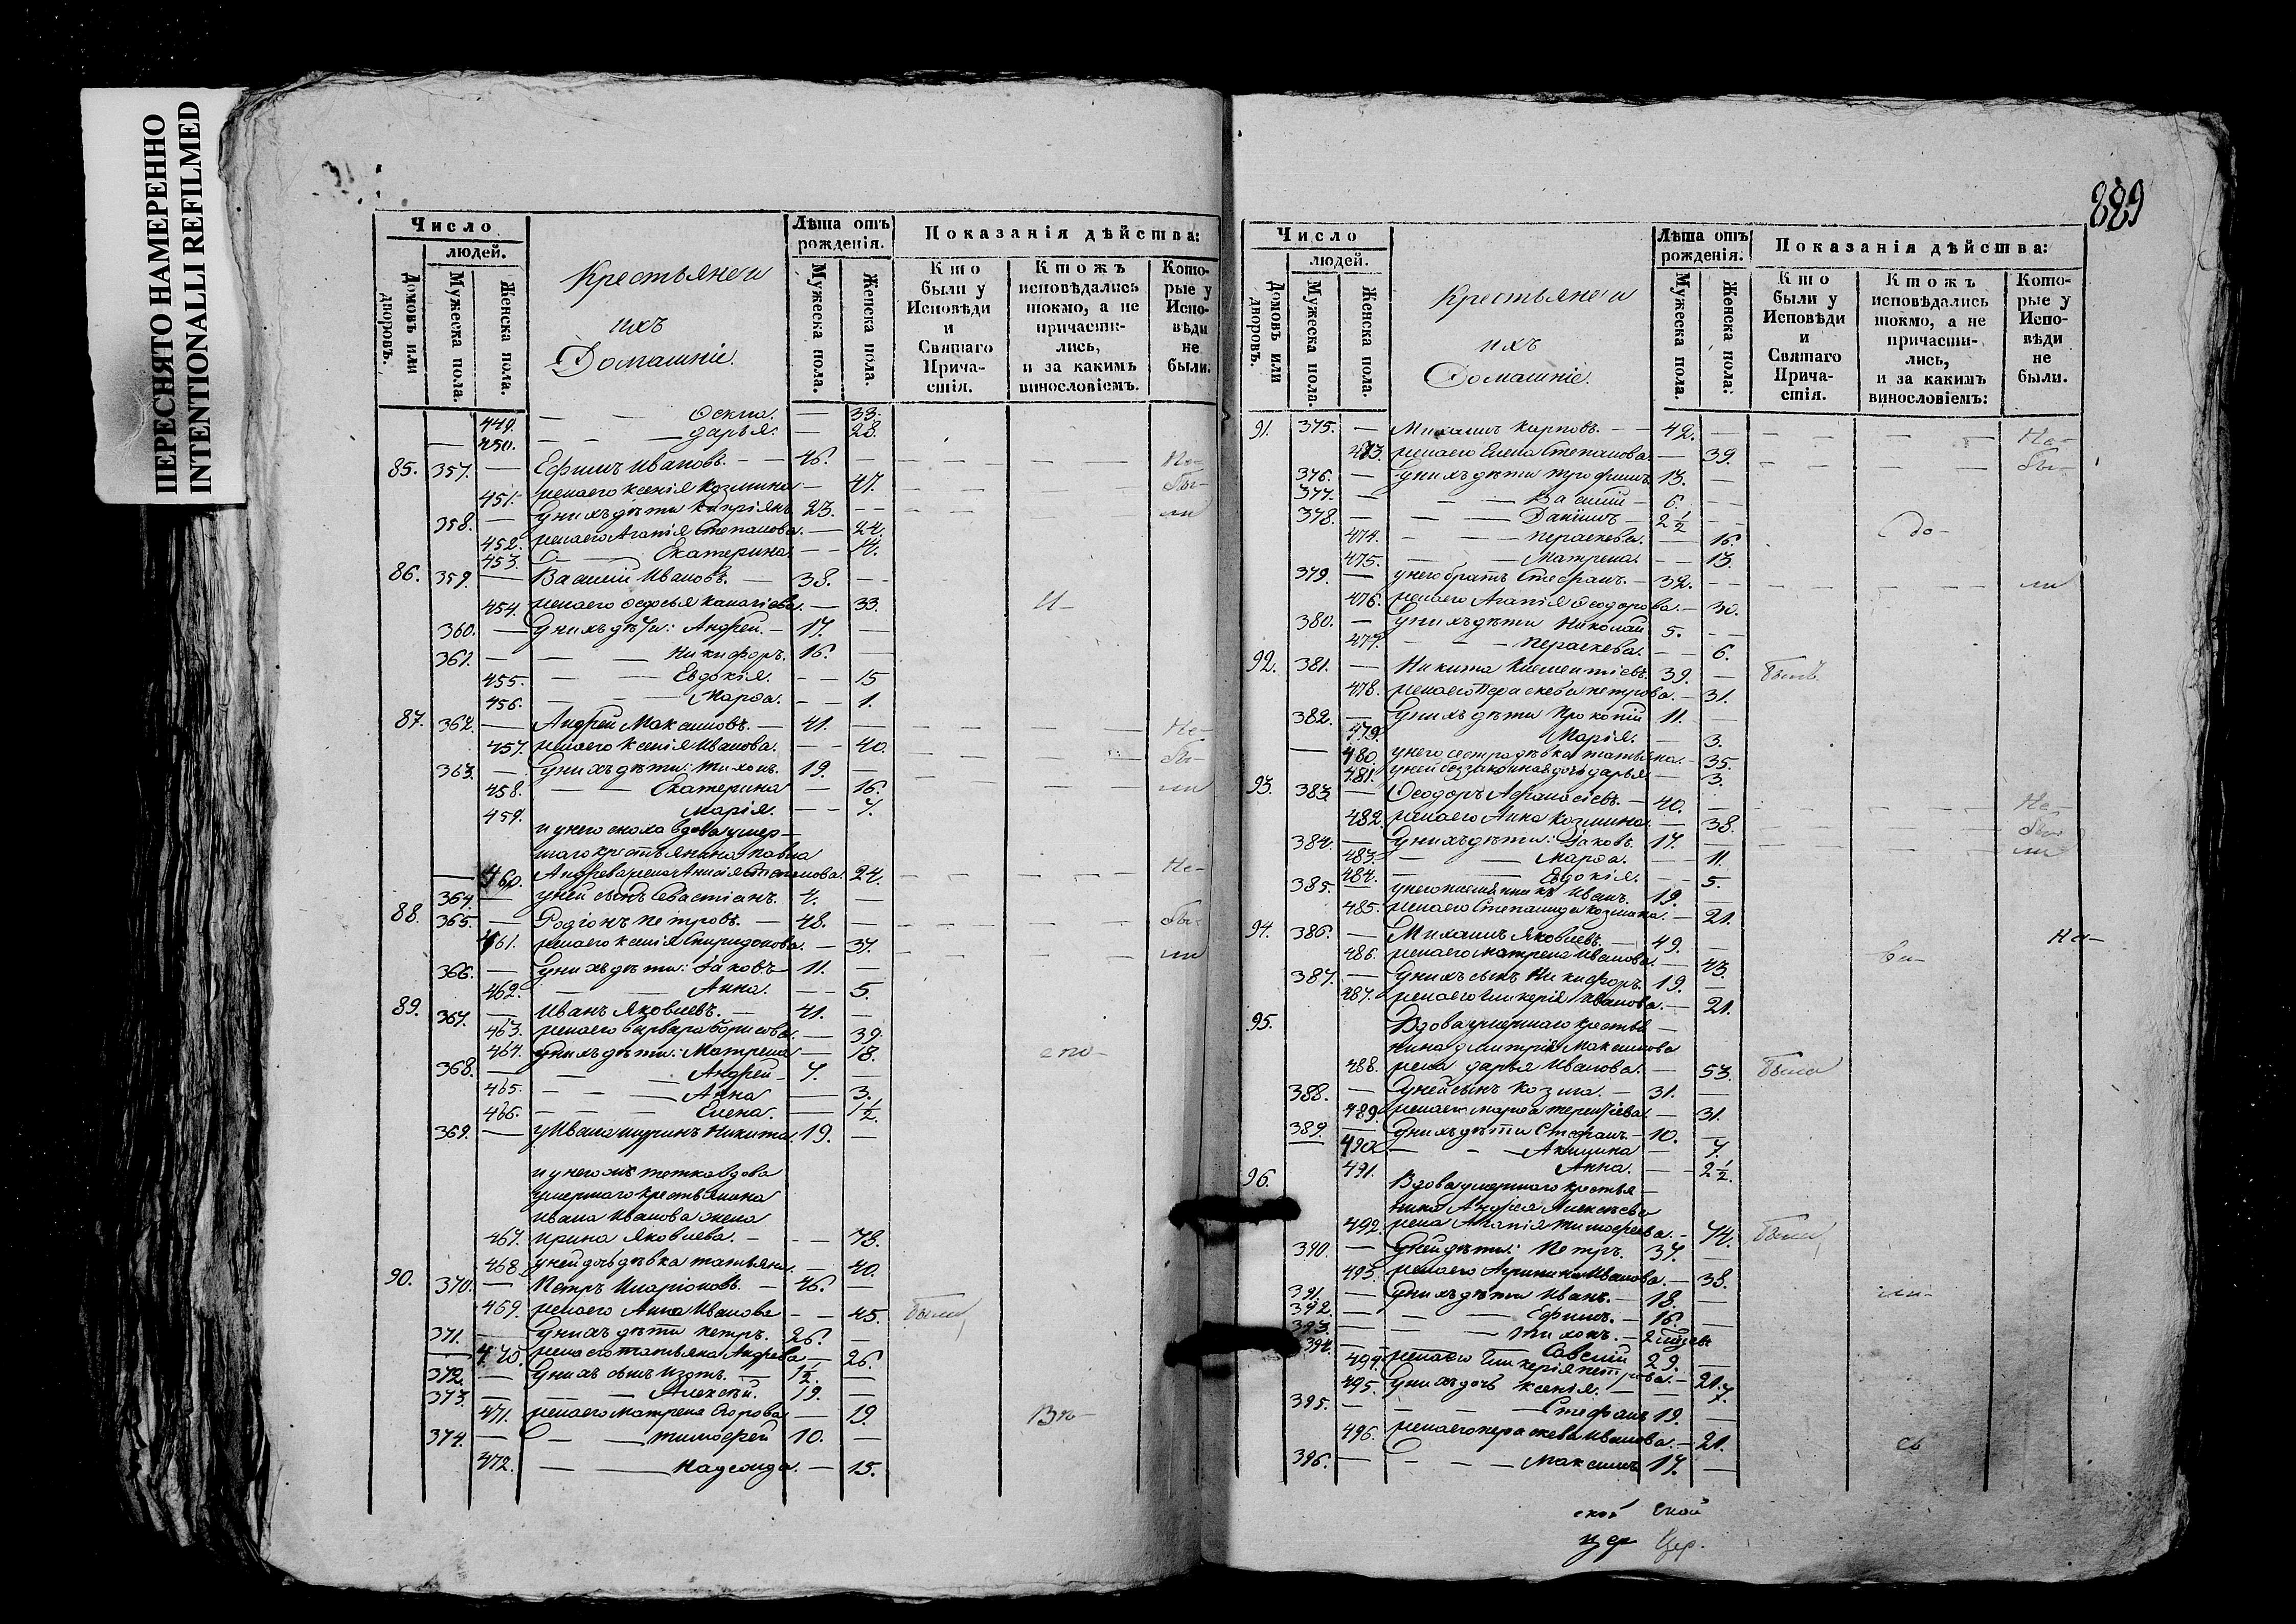 ПЕРЕСНЯТО НАМЕРЕННО
INTENTIONALLI REFILMED
Число
людей.
Домовъ или дворовъ.
Мужеска пола.
Женска пола.
Крестьяне и
ихъ
Домашніе.
Лѣта отъ рожденія.
Мужеска пола.
Женска пола.
Показанія дѣйства:
Кто были у Исповѣди и Святаго Прича-стія.
Ктожъ исповѣдались токмо, а не причасти-лись, и за какимъ винословіемъ.
Кото-рые у Испо-вѣди не были.
449. — — Ѳекла. — 33.
450. — — Дарья. — 28.
85. 357. — Ефимъ Ивановъ. — 46. — Не-
451. жена его Ксенія Козмина — 47. бы-
358. — У нихъ дѣти Кипріянъ 23. — ли
452. жена его Агапія Степанова. — 24.
453. — Екатерина — 14.
86. 359. — Василій Ивановъ. — 38. —
454. жена его — 33. И-
360. — У нихъ дѣти: Андрей. — 17. —
361. — — Никифоръ. 16. —
455. — — Евдокія. — 15
456. — — Марѳа. — 1.
87. 362. — Андрей Максимовъ. — 41. — Не-
457. жена его Ксенія Иванова. — 40. бы-
363. — У нихъ дѣти: Тихонъ. 19. — ли
458. — — Екатерина — 16.
459. Марія. — 7.
и у него сноха вдова умер-
шаго крестьянина Павла
460. Андреева жена Анисія 24. Не-
364. — у ней сынъ Севастіанъ. 4. —
88. 365. — Родіонъ Петровъ. — 48. — бы-
461. жена его Ксенія Спиридонова. — 37. ли
366. — У нихъ дѣти: Іаковъ 11. —
462. — Анна. — 5.
89. 367. — Иванъ Яковлевъ. — 41. —
463. жена его Варвара Борисова. — 39.
464. У нихъ дѣти: Матрена — 18. спо-
368. — — Андрей — 7. —
465. — — Анна — 3.
466. — — Елена. — 1½.
369. — у Ивана шуринъ Никита. 19. —
и у него же тетка вдова
умершаго крестьянина
Ивана Иванова жена
467. Ирина Яковлева. — 78.
468. у ней дочь дѣвка Татьяна. — 40.
90. 370. — Петръ Иларіоновъ. — 46. —
469. жена его Анна Иванова — 45. Были
371. — У нихъ дѣти Петръ. 26. —
470. жена его Татьяна Андреева — 26.
372. — У нихъ сынъ Изотъ. — 1½. —
373. — — Алексѣй. 19. —
471. жена его Матрена Егорова — 19. Вѣ-
374. — — Тимоѳей 10. —
472. — — Надежда. — 15.
889
Число
людей.
Домовъ или дворовъ.
Мужеска пола.
Женска пола.
Крестьяне и
ихъ
Домашніе.
Лѣта отъ рожденія.
Мужеска пола.
Женска пола:
Показанія дѣйства:
Кто были у Исповѣди и Святаго Прича-стія.
Ктожъ исповѣдались токмо, а не причасти-лись, и за какимъ винословіемъ:
Кото-рые у Испо-вѣди не были.
91. 375. — Михаилъ Карповъ. — 42. — Не-
473. жена его Елена Степанова — 39. бы-
376. — У нихъ дѣти Трофимъ 13. —
377. — — Василій — 6. —
378. — — Даніилъ — 2½ —
474. — — Пераскева. — 16. до-
475. — — Матрена. — 13.
379. — у него братъ Стефанъ. — 32. — ли
476. жена его Агапія Ѳеодорова. — 30.
380. — У нихъ дѣти Николай 5. —
477. — — Пераскева. — 6.
92. 381. — Никита Климентіевъ. 39. — Были.
478. жена его Пераскева Петрова. — 31.
382. — У нихъ дѣти Прокопій 11. —
479. Марія. — 3.
480. у него сестра дѣвка Татьяна. — 35.
481. у ней беззаконная дочь Дарья — 3.
93. 383. — Ѳеодоръ Аѳанасіевъ. — 40. — Не-
482. жена его Анна Козмина. — 38. бы-
384. — У нихъ дѣти: Іаковъ. 17. — ли
483. — — Марѳа. — 11.
484. — — Евдокія. — 5.
385. — у него племянникъ Иванъ. 19. —
485. жена его Степанида Козмина. — 21.
94. 386. — Михаилъ Яковлевъ. — 49. — Не-
486. жена его Матрена Иванова. — 43.
387. — У нихъ сынъ Никифоръ. 19. —
487. жена его Гликерія Иванова. — 21.
95. Вдова умершаго кресть-
янина Димитрія Максимова
488. жена Дарья Иванова. — 53. Была
388. — У ней сынъ Козма. — 31. —
489. жена его Марѳа Терентіева. — 31.
389. — У нихъ дѣти Стефанъ. — 10. —
490. — — Акилина — 7.
491. Анна. — 2½.
96. Вдова умершаго кресть-
янина Андрея Алексѣева
492. жена Агапія Тимоѳеева. — 74. Были
390. — У ней дѣти: Петръ. 37. —
493. жена его Иванова. — 38.
391. — У нихъ дѣти Иванъ. — 18. — ли-
392. — — Ефимъ. — 16. —
393. — — Тихонъ. — 2
394. — Савелій 29. —
494. жена его Гликерія Петрова. — 21.
495. У нихъ дочь Ксенія. — 7.
395. — — Стефанъ 19. —
496. жена его Пераскева Иванова. — 21.
396. — — Максимъ 17. —
ской ской
цер Цер.